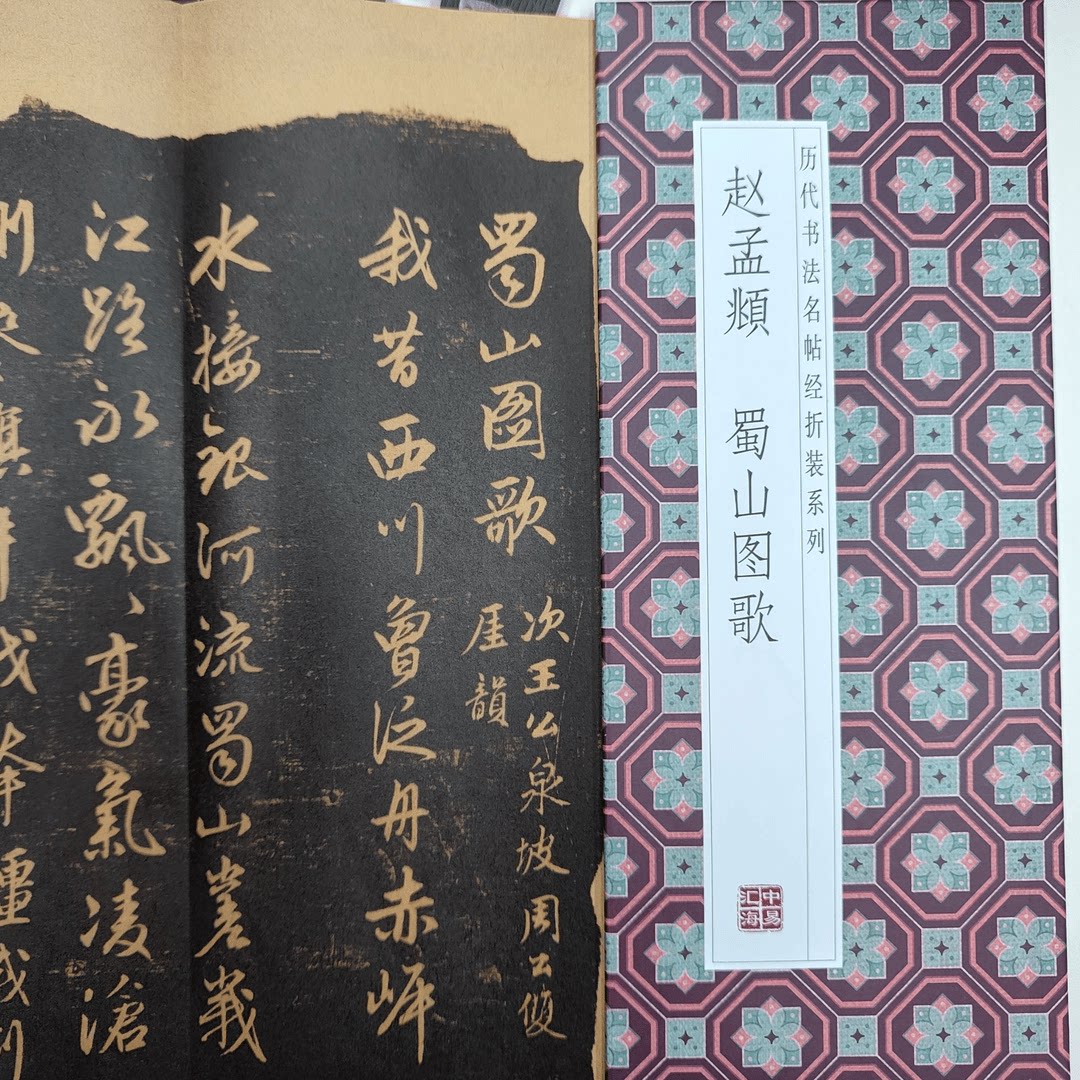 历代书法名帖经折装系列
赵孟頫 蜀山图歌
中易
汇海
蜀山圖歌
次王公泉坡周公
厓韻
我昔西川曾泛舟赤岸
水接銀河流蜀山嵳峩
江路永飄飄豪氣凌滄